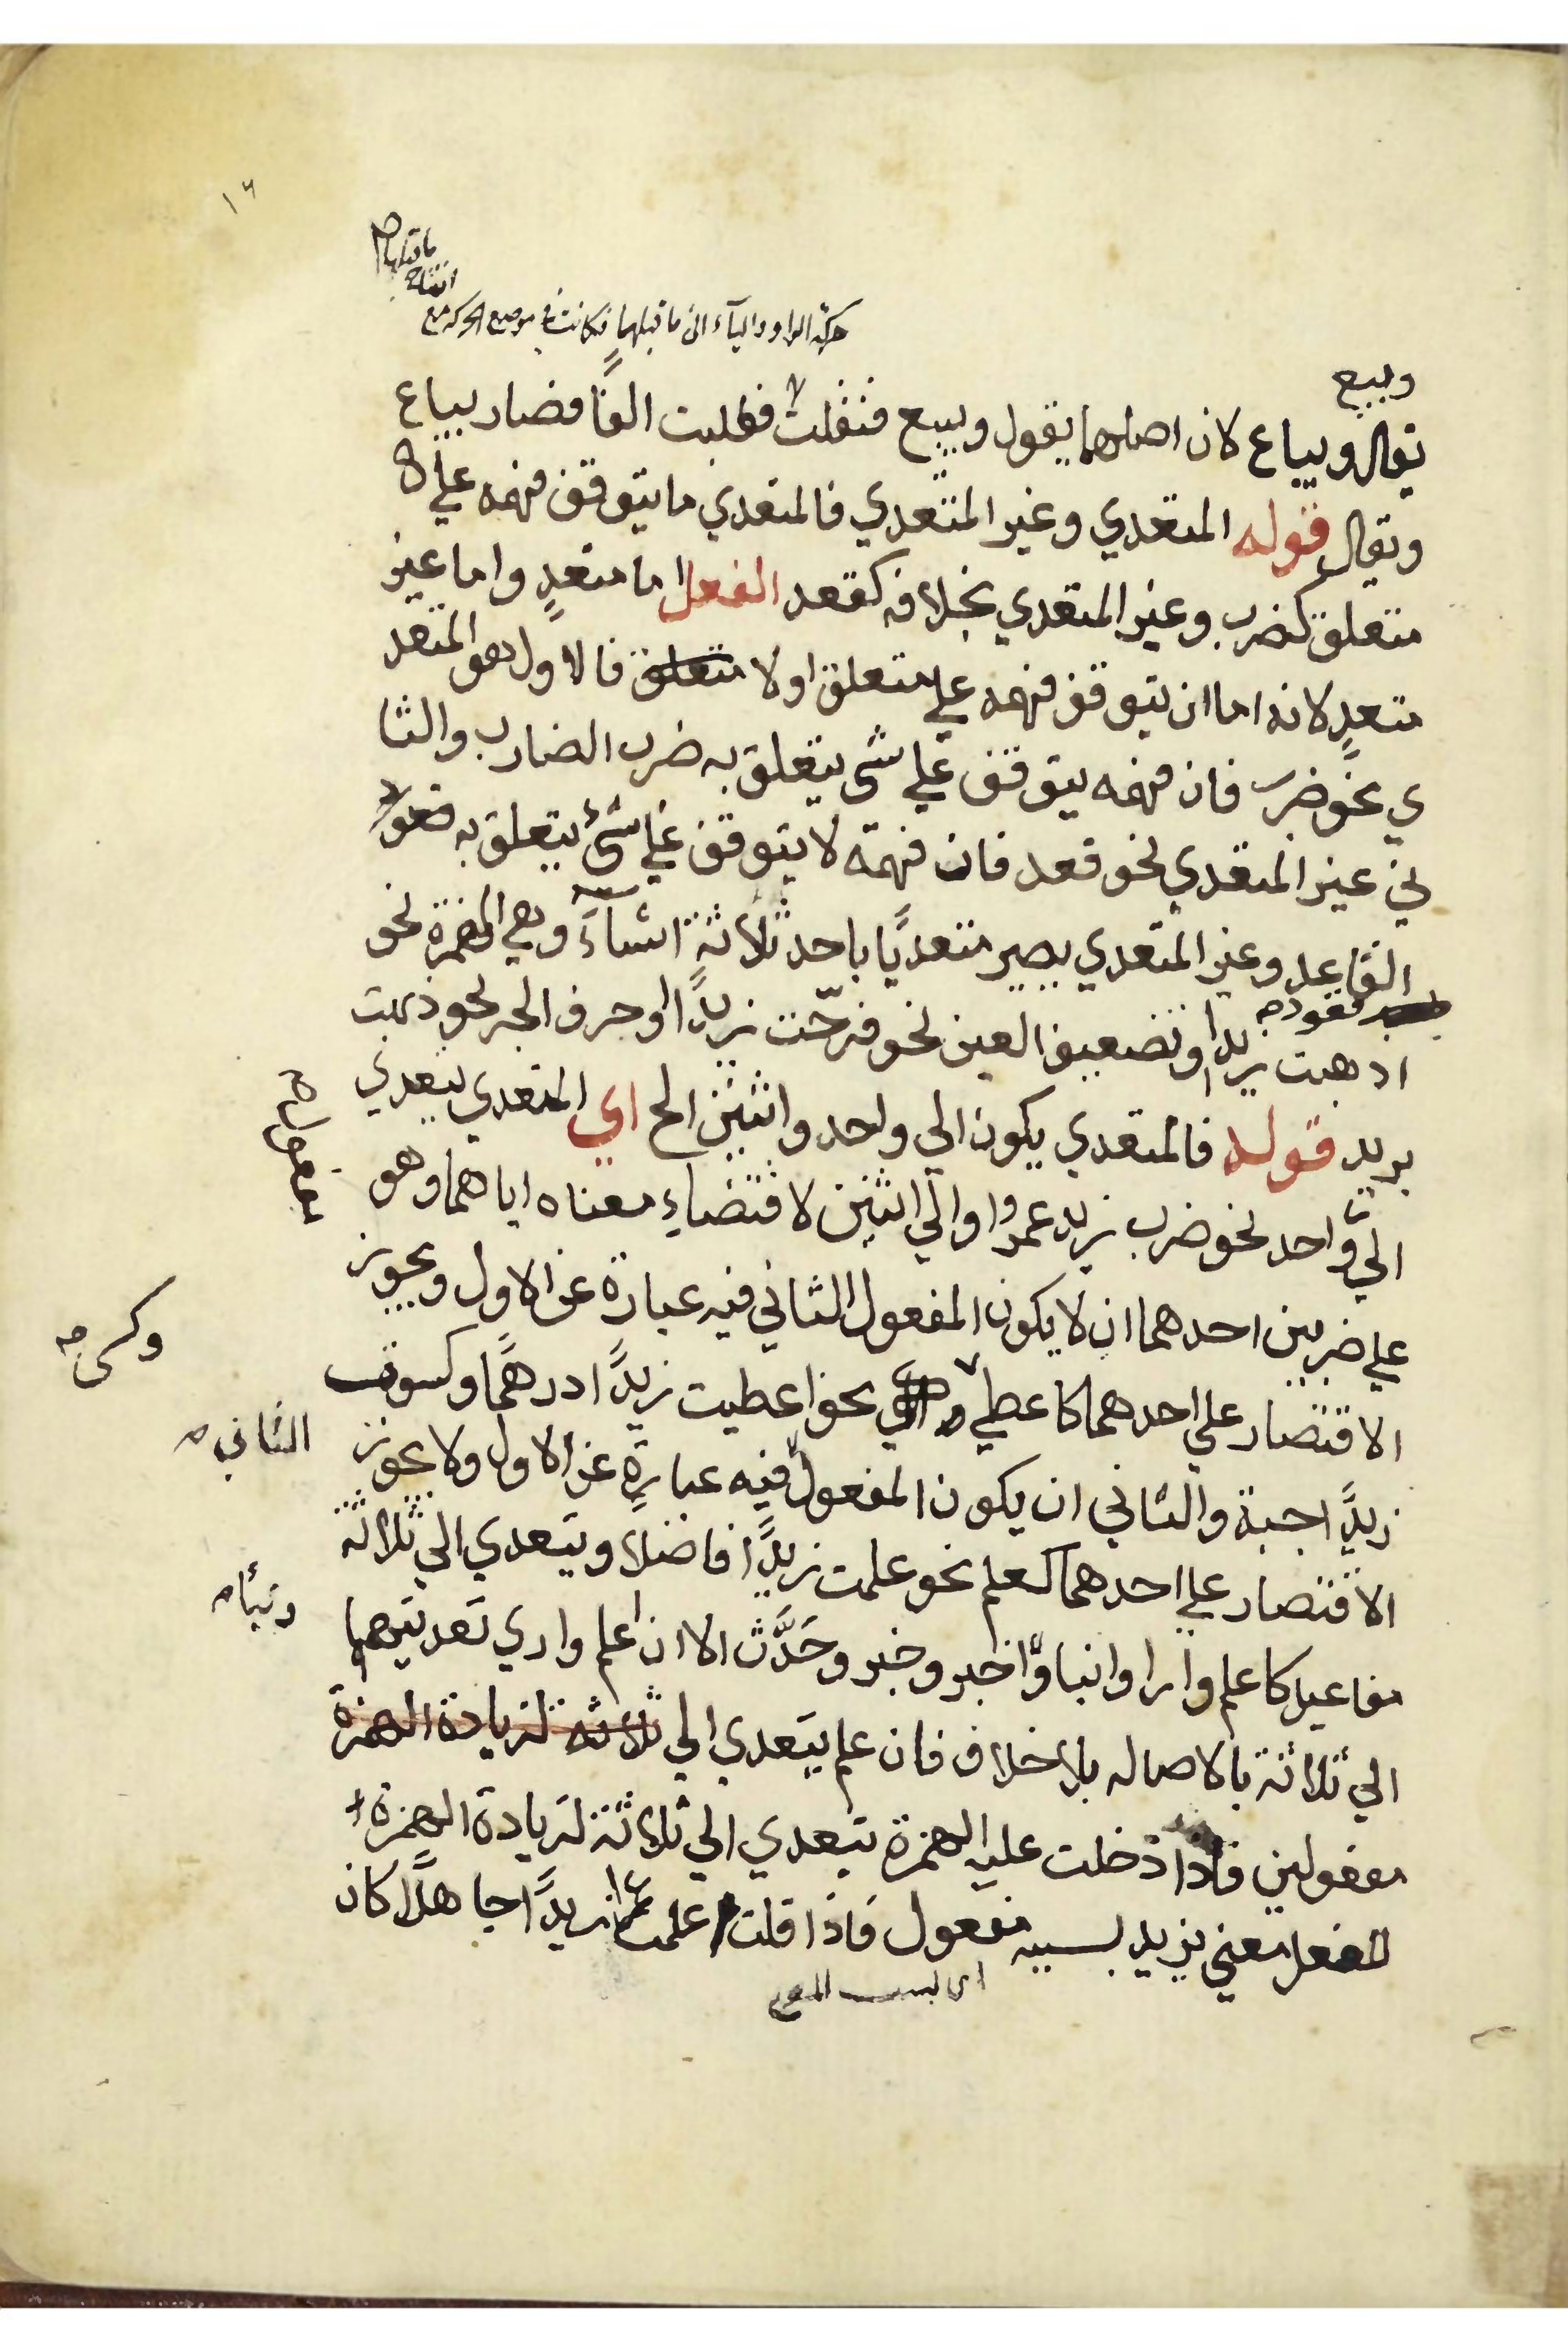 ١٦
حركة الواو والياء الى ما قبلهما فكانت في موضع الحركة مع
انفتاح
ما قبلها صح
وبيع
يقال ويباع لان اصلهما يقول ويبيع فنقلت فقلبت الفًا فصار يباع
ويقال قوله المتعدي وغير المتعدي فالمتعدي ما يتوقف فهمه علي
متعلق كضرب وغير المتعدي بخلافه كقعد الفعل اما متعدٍ واما غير
متعدٍ لانه اما ان يتوقف فهمه علي متعلق او لا متعلق فالاول هو المتعد
ي نحو ضرب فان فهمه يتوقف علي شي يتعلق به ضرب الضارب والثا
ني غير المتعدي نحو قعد فان فهمه لا يتوقف علي شئ يتعلق به قعود
القاعد وغير المتعدي يصير متعديًا باحد ثلاثة اشياءَ وهي الهمزة نحو
قعود صح
اذهبت زيدا وتضعيف العين نحو فرّحت زيدًا او حرف الجر نحو ذهبت
بزيد قوله فالمتعدي يكون الي واحد واثنين الخ اي المتعدي يتعدي
الي واحد نحو ضرب زيد عمروا والي اثنين لاقتضاءِ معناه اياهما وهو
علي ضربين احدهما ان لا يكون المفعول الثاني فيه عبارة عن الاول ويجوز
الاقتصار علي احدهما كاعطي نحو اعطيت زيدًا درهمًا وكسوت
وكسى صح
زيدًا جبة والثاني ان يكون المفعول فيه عبارةٍ عن الاول ولا يجوز
الثاني صح
الاقتصار علي احدهما كعلم نحو علمت زيدًا فاضلا ويتعدي الي ثلاثة
مفاعيل كاعلم وارا وانبا واخبر وخبر وحَدَّث الا ان اعلم واري تعديتهما
ونبأ صح
الي ثلاثة بالاصاله بلا خلاف فان علم يتعدي الي ثلاثه لزيادة الهمزة
مفعولين فاذا دخلت عليه الهمزة تبعدي الي ثلاثة لزيادة الهمزة
الفعل معني يزيد بسببه مفعول فاذا قلت اعلمت زيدًا جاهلًا كان
اي بسبب المعنى